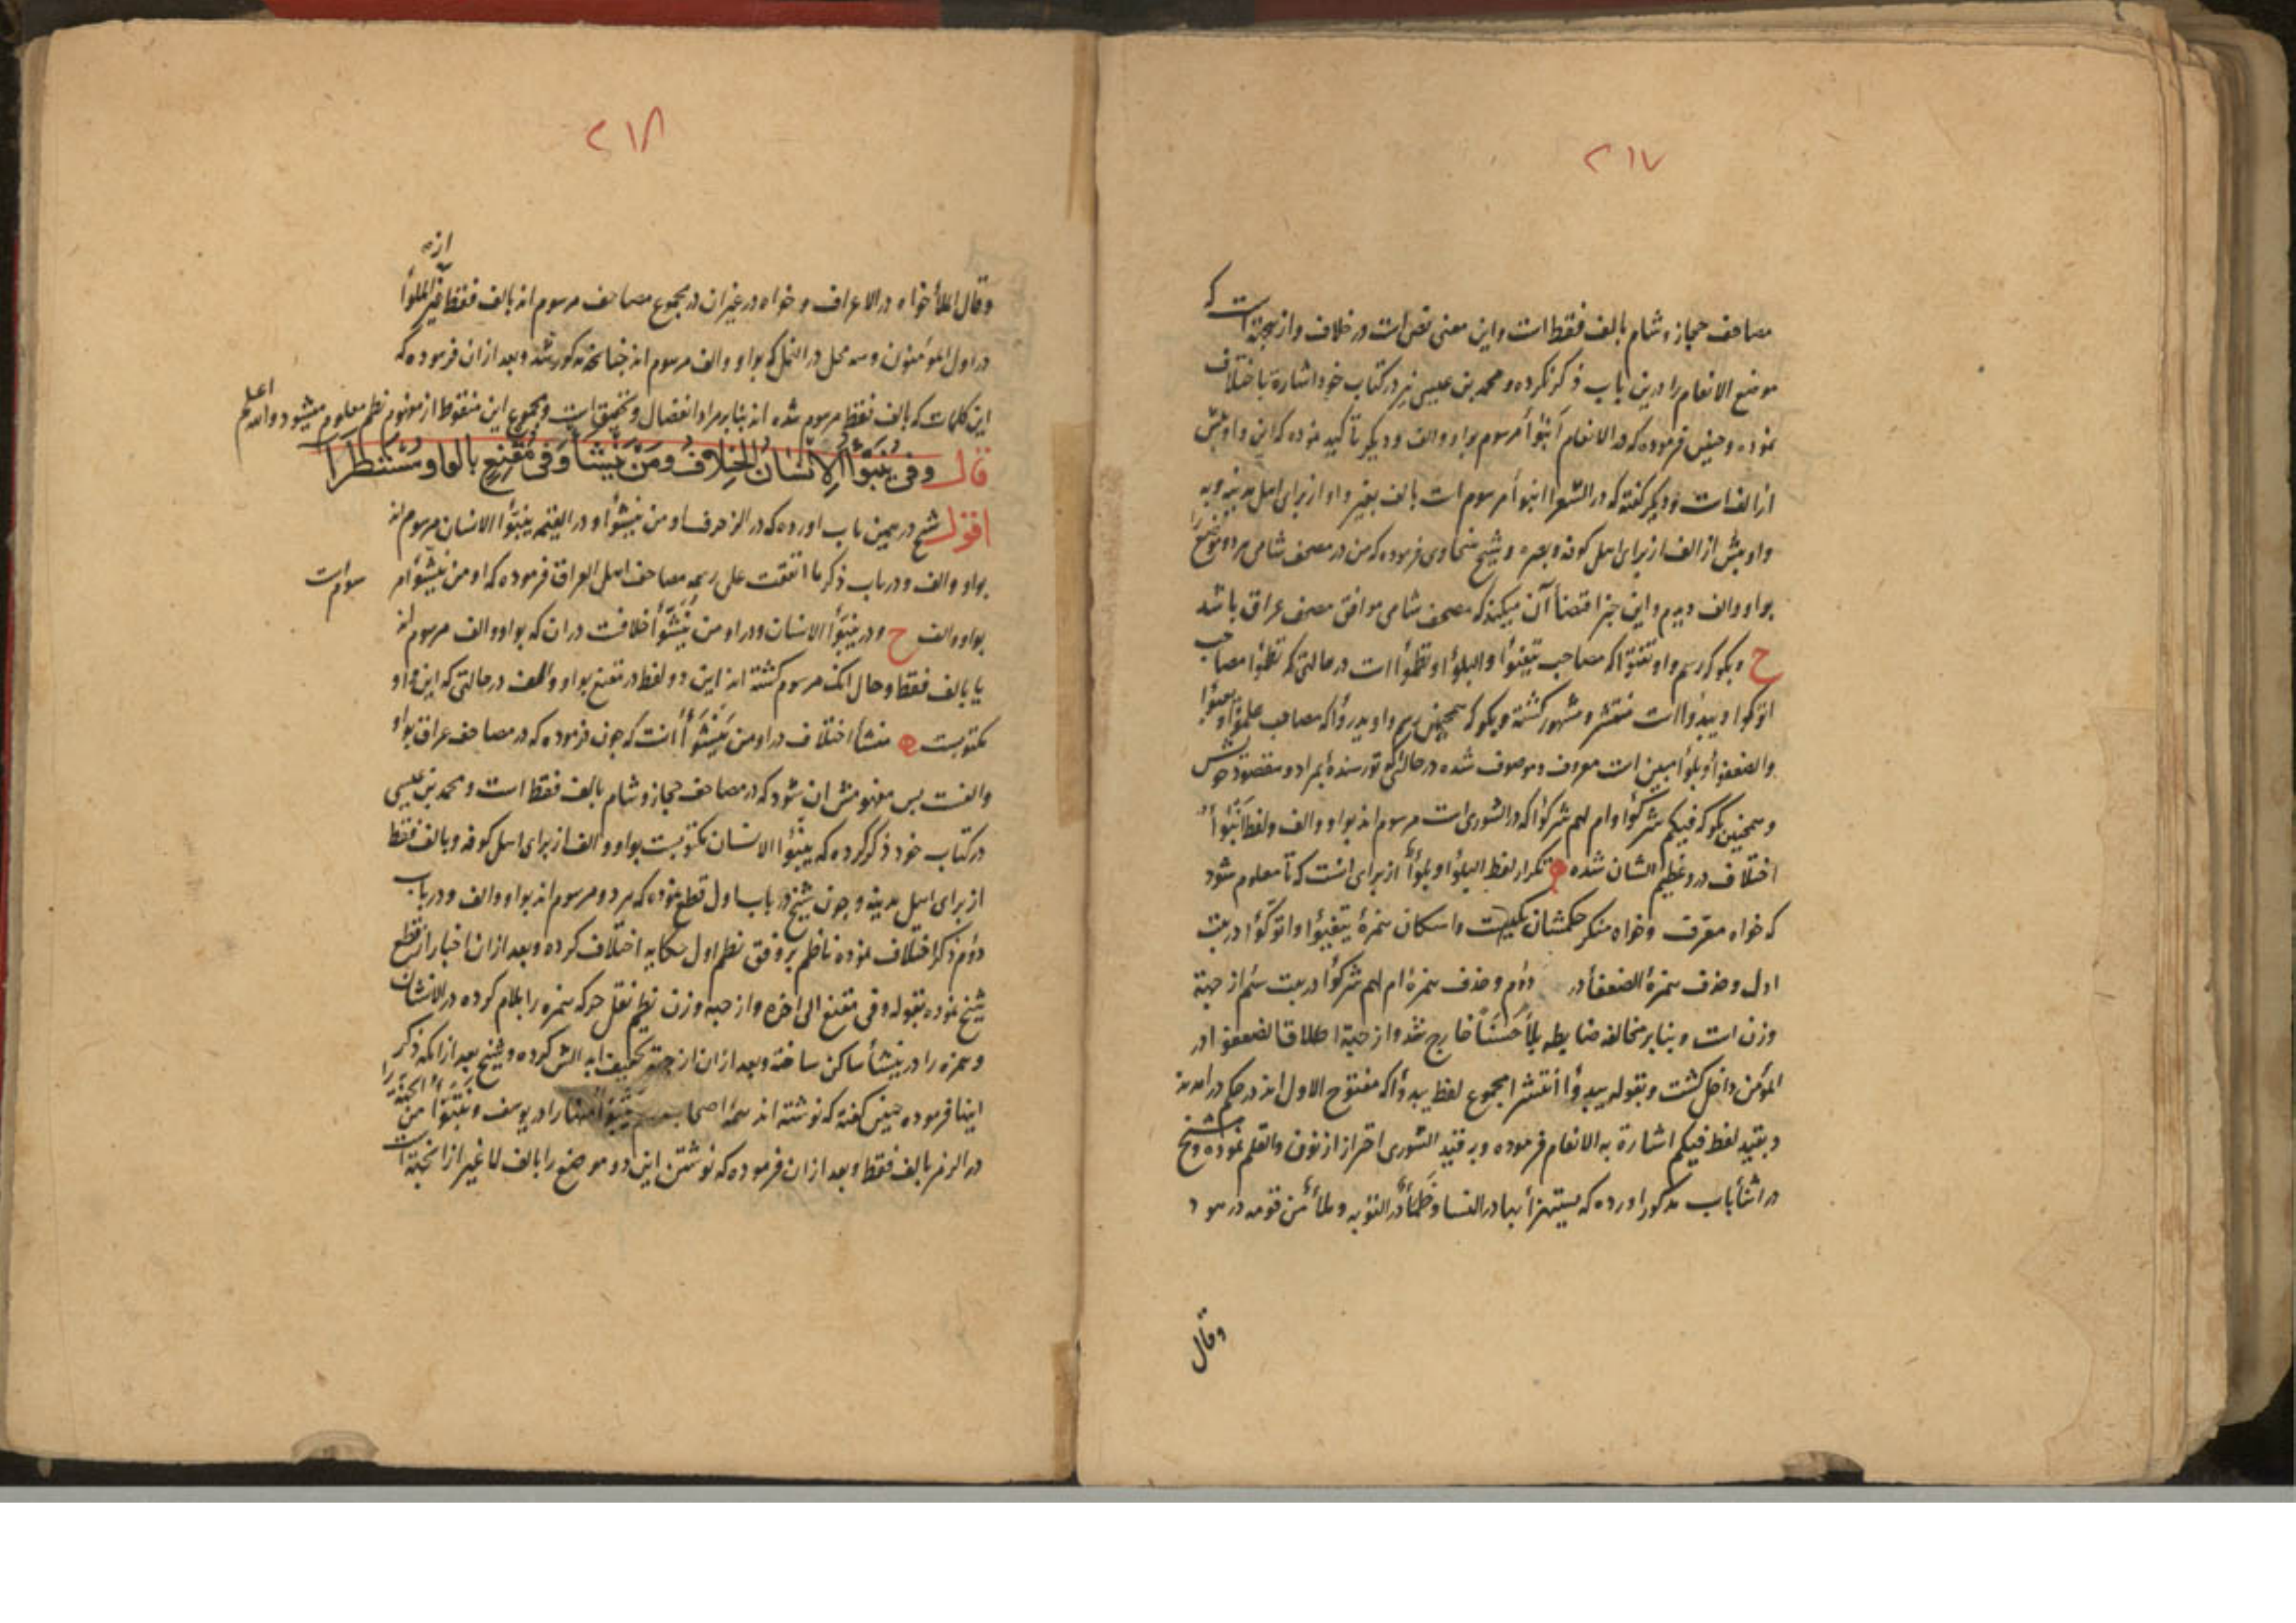 ٢١٧
مصاحف حجاز و شام بالف فقط است و این معنی نص است در خلاف و از بجهة است که
موضع الانعام را درین باب ذکر نکرده و محمد بن عیسی نیز در کتاب خود اشارة باختلاف
نموده و حیض فرموده که در الانعام أنبؤا مرسوم بواو والف و دیکر تاکید نموده که این واو پیش
از الف است و دیکر کفته که در الشعرا انبوا مرسوم است بالف بغیر واو از برای اهل مدینه و به
واو پیش از الف از برای اهل کوفه و بصره و شیخ سخاوی فرموده که من در مصحف شامی هر دو موضع را
بواو والف دیدم و این چیز اقتضأ آن میکند که مصحف شامی موافق مصحف عراق باشد
ح و بکو که رسم واو تفتؤا که مصاحب یتفیؤا و البلؤا و تظمؤا است در حالتی که تظمؤا مصاحب
اتوکؤا و یبدؤا است منتشر و مشهور کشته و بکو که همچنین رسم واو یدرؤا که مصاحب علمؤا و یعبؤا
والضعفؤا و بلؤا مبین است معروف و موصوف شده در حالتی که تو رسنده بمراد و مقصود خویش
و همچنین بکو که فیکم شرکؤا و ام لهم شرکؤا که در الشوری است مرسوم اند بواو والف و لفظ انبؤا
اختلاف درو عظیم الشان شده ه تکرار لفظ البلؤا و بلؤا از برای انست که تا معلوم شود
که خواه معرف و خواه منکر حکمشان یکیست و اسکان همزهٔ یتفیؤا و اتوکؤا در بیت
اول و حذف همزهٔ الضعفأ در دوم و حذف همزهٔ ام لهم شرکؤا در بیت سیم از جهة
وزن است و بنابر مخالفه ضابطه بلأ حسنا خارج شد و از جهة اطلاق الضعفؤا در
المؤمن داخل کشت و بقوله یبدؤا انتشرا مجموع لفظ یبدؤا که مفتوح الاول اند در حکم در امدند
و بقید لفظ فیکم اشارة به الانعام فرموده و بر قید الشوری احتراز از نون والقلم نموده و شیخ
در اثنأ باب مذکور اورده که یستهزأ بها در النسا و ظمأ در التوبه و ملأ من قومه در هود
وقال
٢١٨
وقال الملأ خواه در الاعراف و خواه در غیر ان در مجموع مصاحف مرسوم اند بالف فقط غیر از الملؤا
در اول المؤمنون و سه محل در النمل که بواو والف مرسوم اند چنانچه مذکور شد و بعد ازان فرموده که
این کلمات که بالف فقط مرسوم شده اند بنابر مراد انفصال و تحقیق است و مجموع این منقوط از مفهوم نظم معلوم میشود والله اعلم
قال وفی ینبؤا الانسان الخلاف ومن ینشأ وفی مقنع بالواو مستطرا
اقول شیخ در همین باب اورده که در الزخرف او من ینشؤا و در القیمه ینبؤا الانسان مرسوم اند
بواو والف و در باب ذکر ما اتفقت علی رسمه مصاحف اهل العراق فرموده که او من ینشؤا مرسوم است
بواو والف ح و در ینبؤا الانسان و در او من ینشؤا خلافست در ان که بواو والف مرسوم اند
یا بالف فقط و حال انک مرسوم کشته اند این دو لفظ در مقنع بواو والف در حالتی که این واو
مکتوبست ه منشأ اختلاف در او من ینشؤا انست که چون فرموده که در مصاحف عراق بواو
والفست پس مفهومش ان شود که در مصاحف حجاز و شام بالف فقط است و محمد بن عیسی
در کتاب خود ذکر کرده که ینبؤا الانسان مکتوبست بواو والف از برای اهل کوفه و بالف فقط
از برای اهل مدینه و چون شیخ در باب اول قطع نموده که هر دو مرسوم اند بواو والف و در باب
دوم ذکر اختلاف نموده ناظم بر وفق نظم اول حکایه اختلاف کرده و بعد ازان اخبار از قطع
شیخ نموده بقوله وفی مقنع الی اخره و از جهة وزن نظم نقل حرکه همزه را بلام کرده در الانسان
و همزه را در ینشأ ساکن ساخته و بعد ازان از جهة تخفیف ابدالش کرده و شیخ بعد ازانکه ذکر
اینها فرموده چنین کفته که نوشته اند همه اصحاب نتبؤا منها را در یوسف و نتبؤا من الجنة را
در الزمر بالف فقط و بعد ازان فرموده که نوشتن این دو موضع را بالف لا غیر از انجهة است